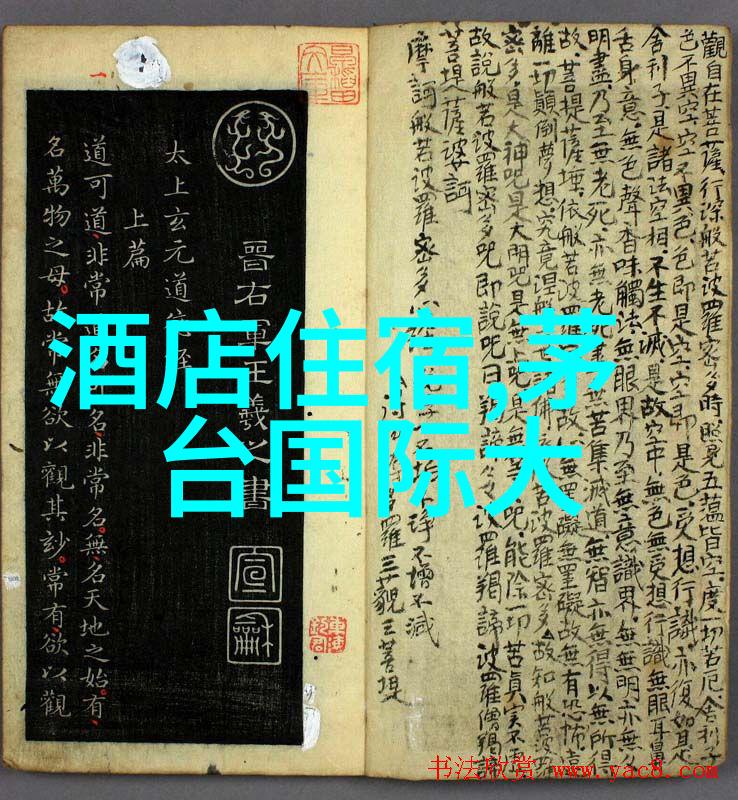 酒店住宿,茅
台国际大
觀自在菩薩行深般若波羅密多時照見五蘊皆空度一切苦厄舍利子
色不異空空不異色色即是空空即是色受想行識亦復如是
舍利子是諸法空相不生不滅是故空中無色無受想行識無眼耳鼻
舌身意無色聲香味觸法無眼界乃至無意識界無無明亦無
明盡乃至無老死亦無老死苦集滅道無智亦無得以無所得
故菩提薩埵依般若波羅故無罣礙無罣礙故無有恐怖遠
離一切顛倒夢想究竟涅槃若波羅密多故知般若波羅
密多是大神呪是大明呪是無上呪是無呪能除一切苦真實不
故說般若波羅密多呪即說呪曰羯諦波羅羯諦波羅僧羯諦
菩提薩婆訶
摩訶般若波羅密多不淨不增不減
多羅三藐三菩提
晉右軍王羲之書
宣龢
太上玄元道
上篇
道可道非常名非常名無名天地之始有
名萬物之母故常無欲以觀其妙常有欲以觀
书法欣赏 www.yac8.com